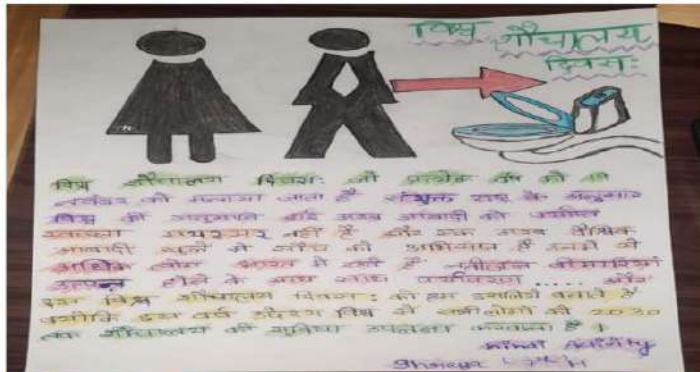 विश्व शौचालय
दिवस:
विश्व शौचालय दिवस: जो प्रत्येक वर्ष को 19
नवंबर को मनाया जाता है संयुक्त राष्ट्र के अनुसार
विश्व की अनुमानत ढाई अरब आबादी को पर्याप्त
स्वच्छता मयस्सर नहीं है और एक अरब वैश्विक
आबादी खुले में शौच को अभिशप्त है उनमें से
अधिक लोग भारत में रहते हैं नतीजन बीमारियां
उत्पन्न होने के साथ साथ पर्यावरण .... और
इस विश्व शौचालय दिवस: को हम इसलिये मनाते है
क्योंकि इस वर्ष विश्व में सभी लोगों को 2030
तक शौचालय की सुविधा उपलब्ध करवाना है।
Hindi Activity
Shreeya